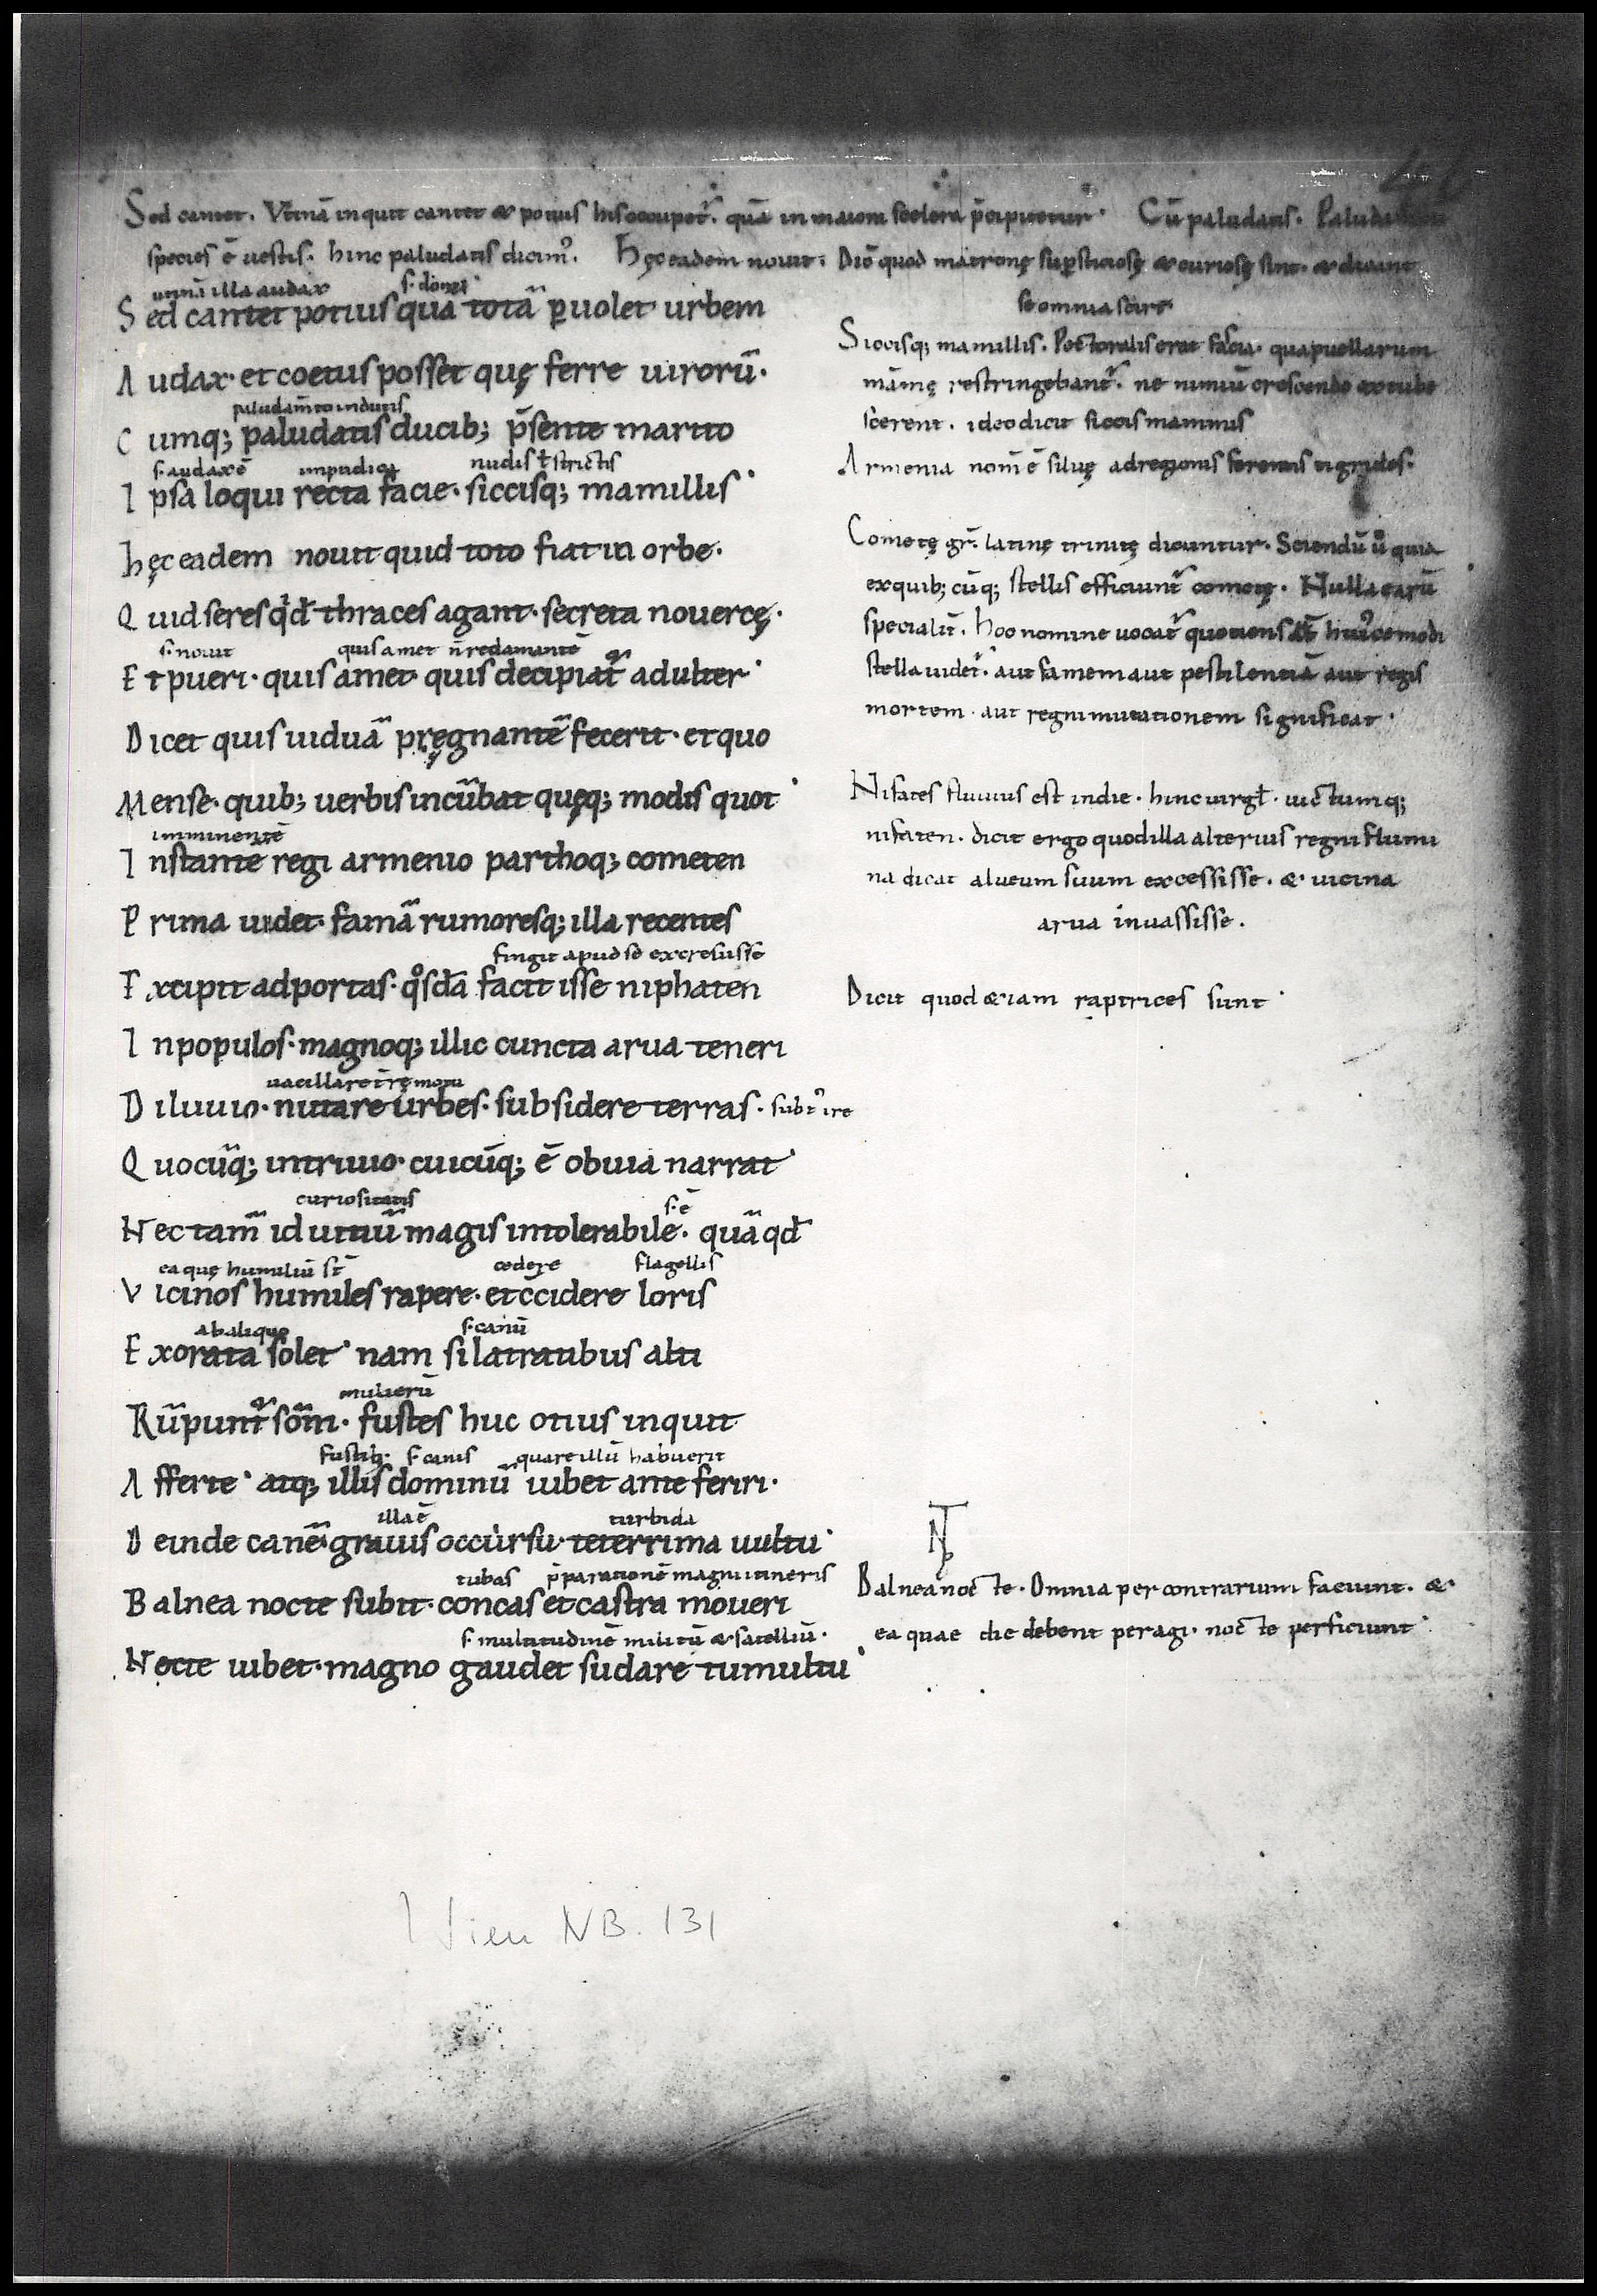 Sed cantet. Vtinā inquit cantet & potius his occupet᷑. quā in maiora scelera p̄cipitetur. Cū paludatis. Paluda
species ē uestis. hinc paludatis dicim᷒. Hęc eadem nouit. Dič quod matronę sup̱sticiosę & curiosę sint. & dicant
se omnia scire
utinā illa audax s. donet
Sed cantet potius quā totā ꝑuolet urbem
Siccisq; mamillis. Pectoralis erat fascia. qua puellarum
Audax. et coetus posset quę ferre uirorū.
mām̄ę restringebant᷑. ne nimiū crescendo extube
paludam̄to indutis
scerent. ideo dicit siccis mammis
Cumq; paludatis ducib; p̄sente marito
s. audax ē impudica nudis ł strictis
Armenia nom̄ ē siluę ad regionis ferentis tigrides.
Ipsa loqui recta facie. siccisq; mamillis
Cometę gr̄. latinę crinitę dicuntur. Sciendū u͛ quia
hęc eadem nouit quid toto fiat in orbe.
ex quib; cūq; stellis efficiunt᷑ cometę. Nulla earū
Quid seres qͥd thraces agant. secreta nouercę.
specialit̄. hoc nomine uocat᷑ quociens huī᷒cemodi
s. nouit quis amet n̄ redamantē
stella uidet᷑. aut famem aut pestilenciā aut regis
Et pueri. quis amet quis decipiat᷑ adulter
mortem aut regni mutationem significat.
Dicet quis uiduā pręgnantē fecerit. et quo
Mense. quib; uerbis incūbat quęq; modis quot
Nifates fluuius est indie. hinc uirgł. uictumq;
imminentē
nifaten. dicit ergo quod illa alterius regni flumi
Instantē regi armenio parthoq; cometen
na dicat alueum suum excessisse. & uicina
Prima uidet. famā rumoresq; illa recentes
arua inuassisse.
fingit apud se excresuisse
Excipit ad portas. qͦsdā facit isse niphaten
Dicit quod &iam raptrices sunt.
In populos. magnoq; illic cuncta arua teneri
uacillare t̄ręmotu
Diluuio. nutare urbes. subsidere terras. subt᷒ire
Quocūq; in triuio. cuicūq; ē obuia narrat
curiositatis s. ē
Nec tam̄ id uitiū magis intolerabile. quā qd̄
ea quę humiliū st̄ cedere flagellis
Vicinos humiles rapere. et ccidere loris
ab aliquo s. canū
Exorata solet. nam si latratibus alti
mulierū
Rūpunt᷑ som̄. fustes huc otius inquit
fustib; s. canis quare illū habuerit
Afferte. atq; illis dominū iubet ante feriri.
illa ē turbida
Deinde canē grauis occursu. teterrima uultu.
tubas p̄parationē magni itineris
Balnea nocte. Omnia per contrarium faciunt. &
Balnea nocte subit. concas et castra moueri
ea quae die debent peragi. nocte perficiunt.
s. multitudinē militū & satellitū.
Nocte iubet. magno gaudet sudare tumultu
Wien NB. 131